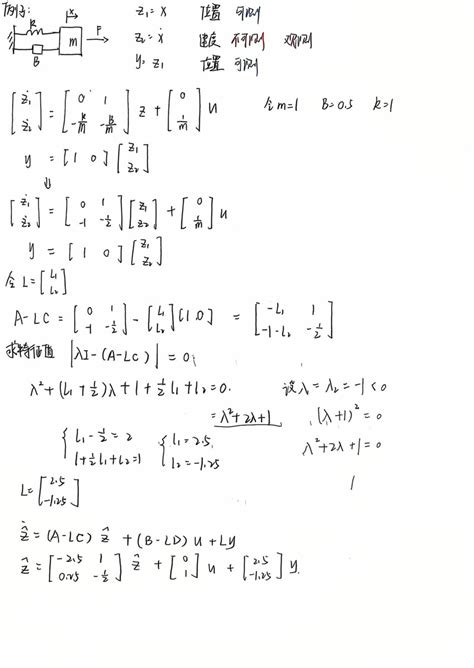 例子:
k
x
m
F
B
z₁ = x 位置 可测
z₂ = ẋ 速度 不可测 观测
y = z₁ 位置 可测
[ż₁; ż₂] = [0 1; -k/m -B/m] z + [0; 1/m] u 令 m=1 B=0.5 k=1
y = [1 0] [z₁; z₂]
⇓
[ż₁; ż₂] = [0 1; -1 -1/2] [z₁; z₂] + [0; 1/m] u
y = [1 0] [z₁; z₂]
令 L = [L₁; L₂]
A-LC = [0 1; -1 -1/2] - [L₁; L₂] [1 0] = [-L₁ 1; -1-L₂ -1/2]
求特征值 |λI-(A-LC)| = 0;
λ²+(L₁+1/2)λ+1+1/2 L₁+L₂=0. 设 λ₁=λ₂=-1<0
= λ²+2λ+1 (λ+1)²=0
{ L₁-1/2=2 { L₁=2.5, λ²+2λ+1=0
1+1/2 L₁+L₂=1 L₂=-1.25
L = [2.5; -1.25]
ẑ̇ = (A-LC) ẑ + (B-LD) u + Ly
ẑ̇ = [-2.5 1; 0.25 -1/2] ẑ + [0; 1] u + [2.5; -1.25] y.